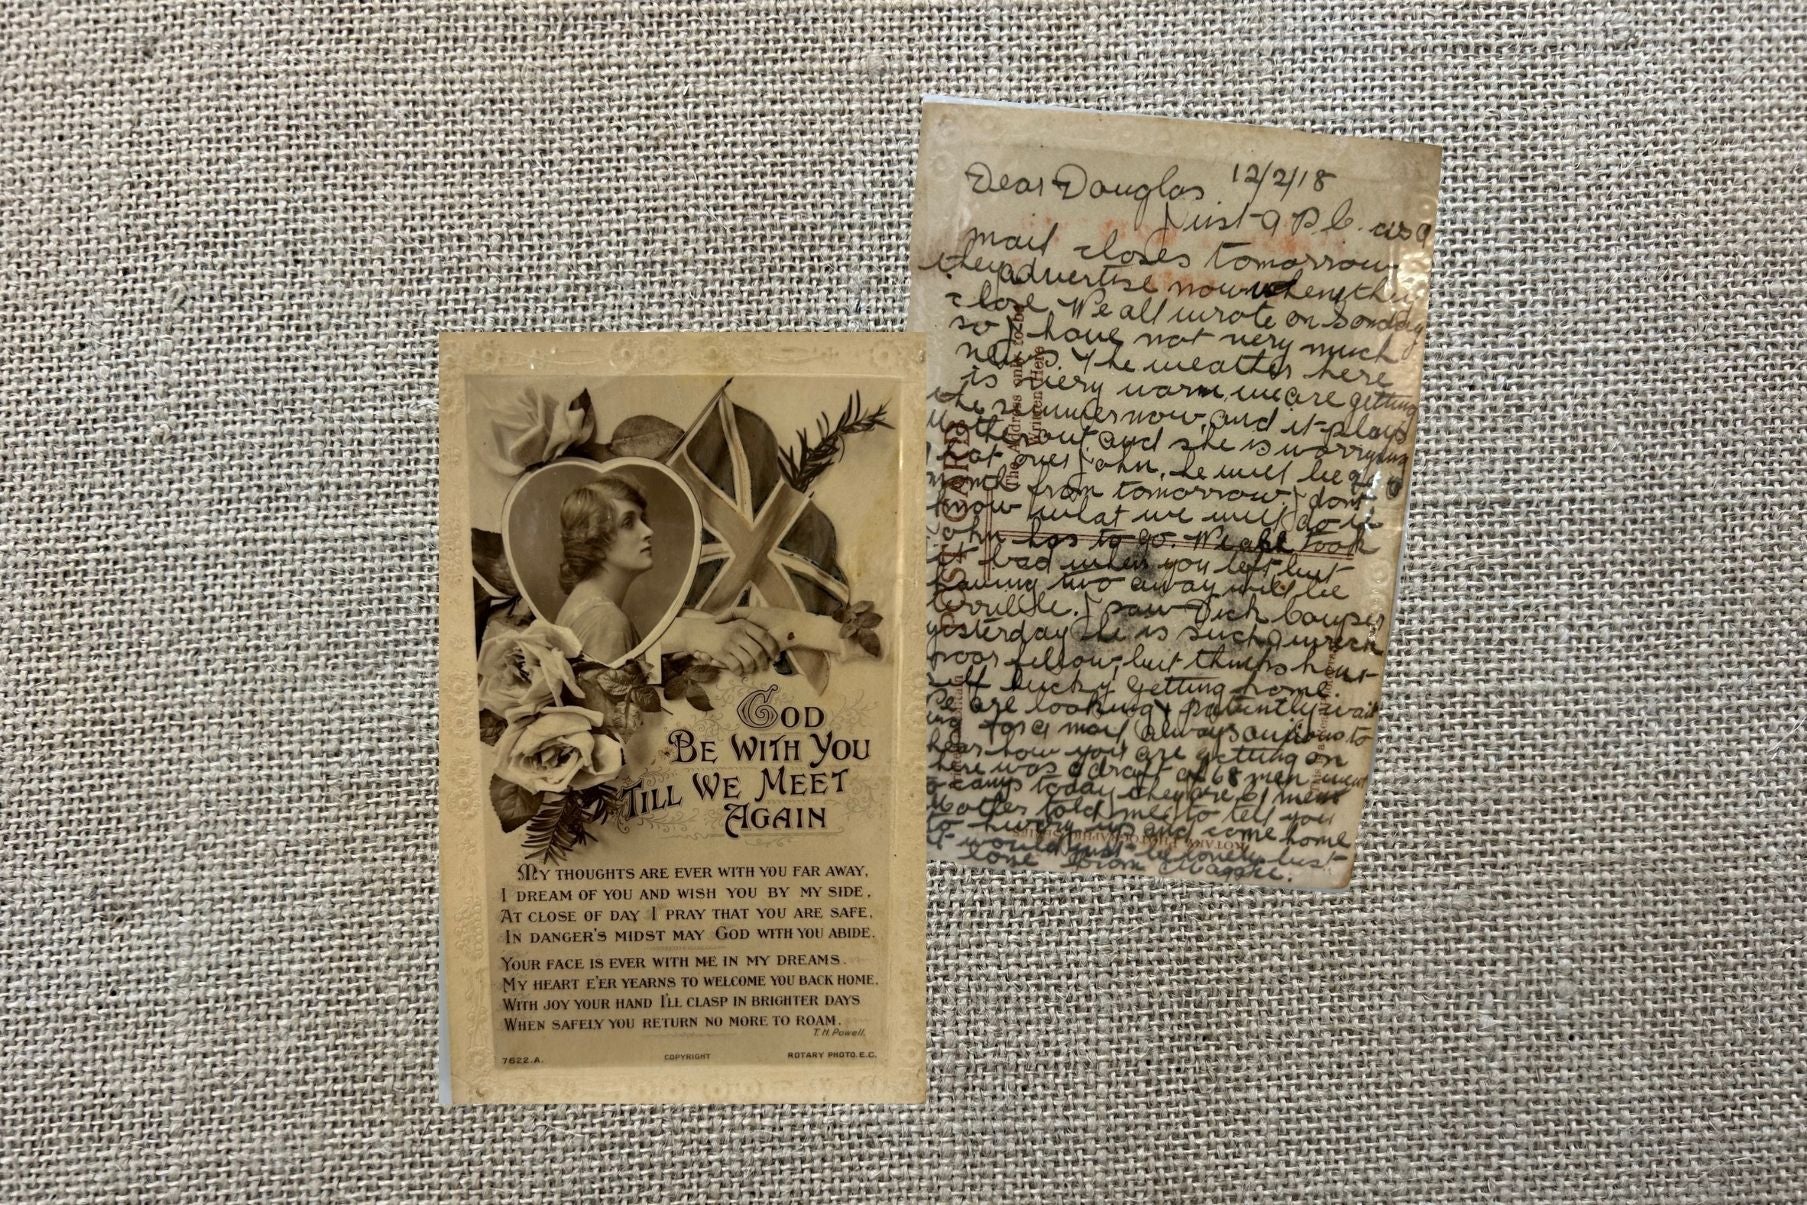 GOD
BE WITH YOU
TILL WE MEET
AGAIN
MY THOUGHTS ARE EVER WITH YOU FAR AWAY,
I DREAM OF YOU AND WISH YOU BY MY SIDE,
AT CLOSE OF DAY I PRAY THAT YOU ARE SAFE,
IN DANGER'S MIDST MAY GOD WITH YOU ABIDE.
YOUR FACE IS EVER WITH ME IN MY DREAMS.
MY HEART E'ER YEARNS TO WELCOME YOU BACK HOME,
WITH JOY YOUR HAND I'LL CLASP IN BRIGHTER DAYS
WHEN SAFELY YOU RETURN NO MORE TO ROAM.
T. H. Powell.
7622.A. COPYRIGHT ROTARY PHOTO. E.C.
Dear Douglas 12/2/18
Just a P.C. as a
mail closes tomorrow
they advertise now when they
close. We all wrote on Sunday
so I have not very much
news. The weather here
is very warm, we are getting
the summer now, and it plays
Mother out and she is worrying
that over John, he will be
month from tomorrow, I dont
know what we will do if
John has to go. We all took
it bad when you left but
having two away will be
terrible. I saw Dick Couper
yesterday he is such a wreck
poor fellow, but thinks him-
self lucky getting home.
We are looking & patiently wait
ing for a mail always anxious to
hear how you are getting on
there was a draft of 68 men went
to camp today they are C1 men
Mother told me to tell you
to hurry up and come home
love from Maggie.
POST CARD
The Address only to be
Written Here